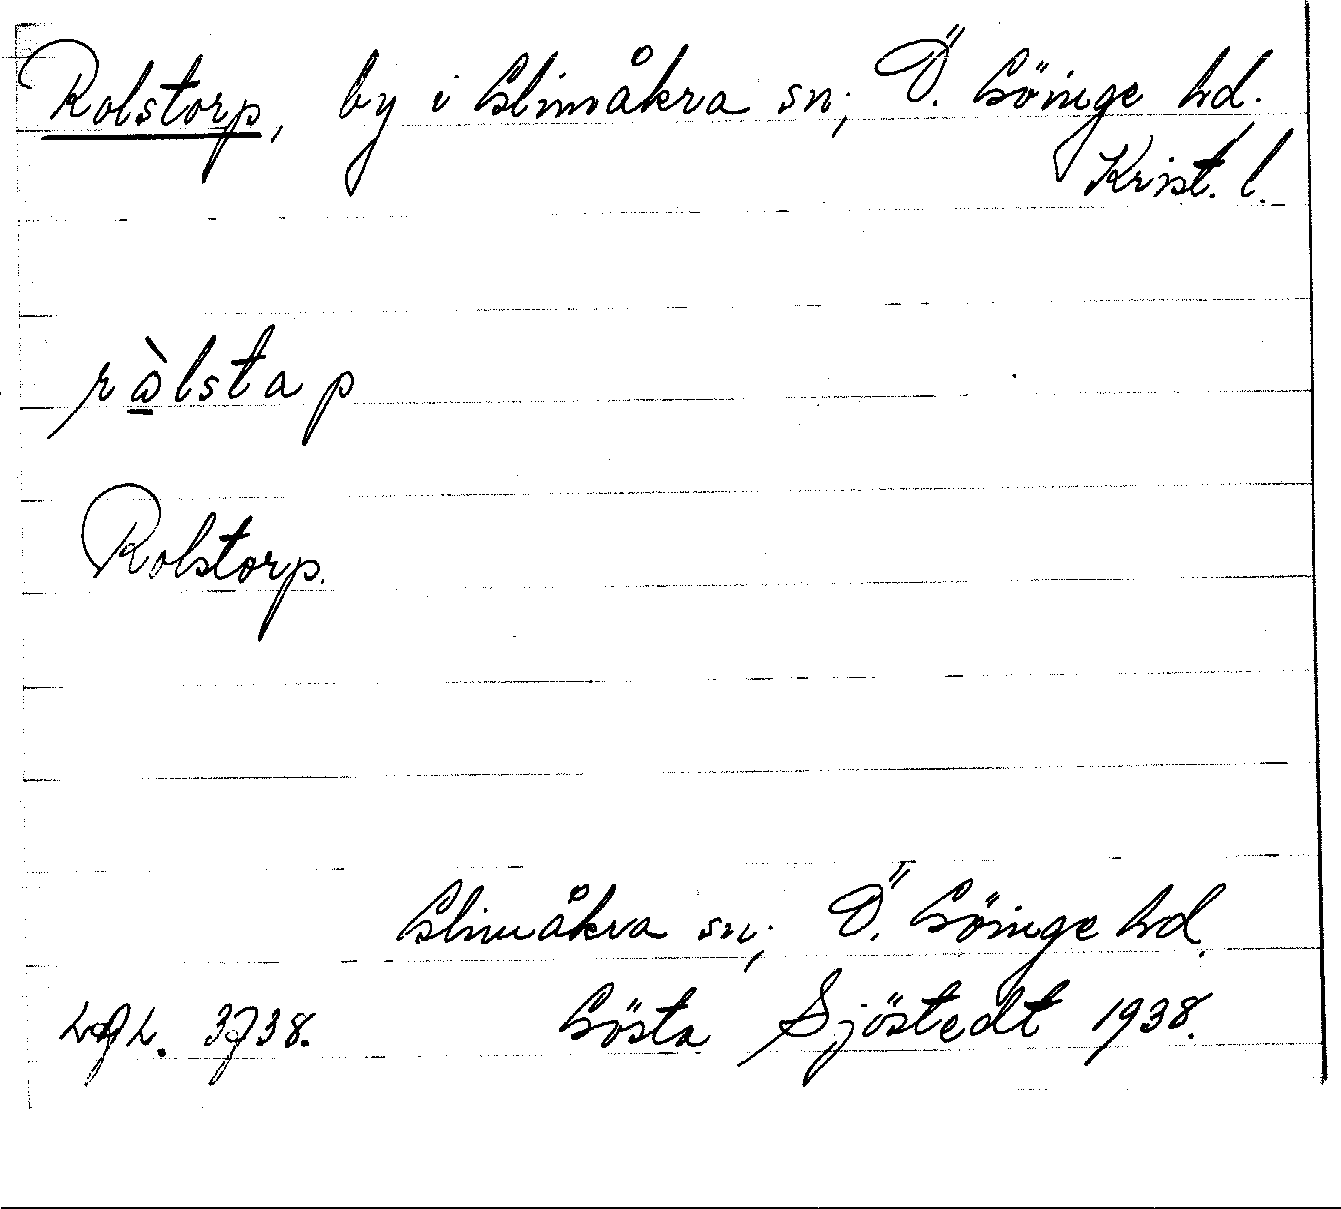 Rolstorp, by i Glimåkra sn; Ö. Göinge hd.
Krist. l.
ràlstap
Rolstorp.
Glimåkra sn; Ö. Göinge hd.
3738. Gösta Sjöstedt 1938.